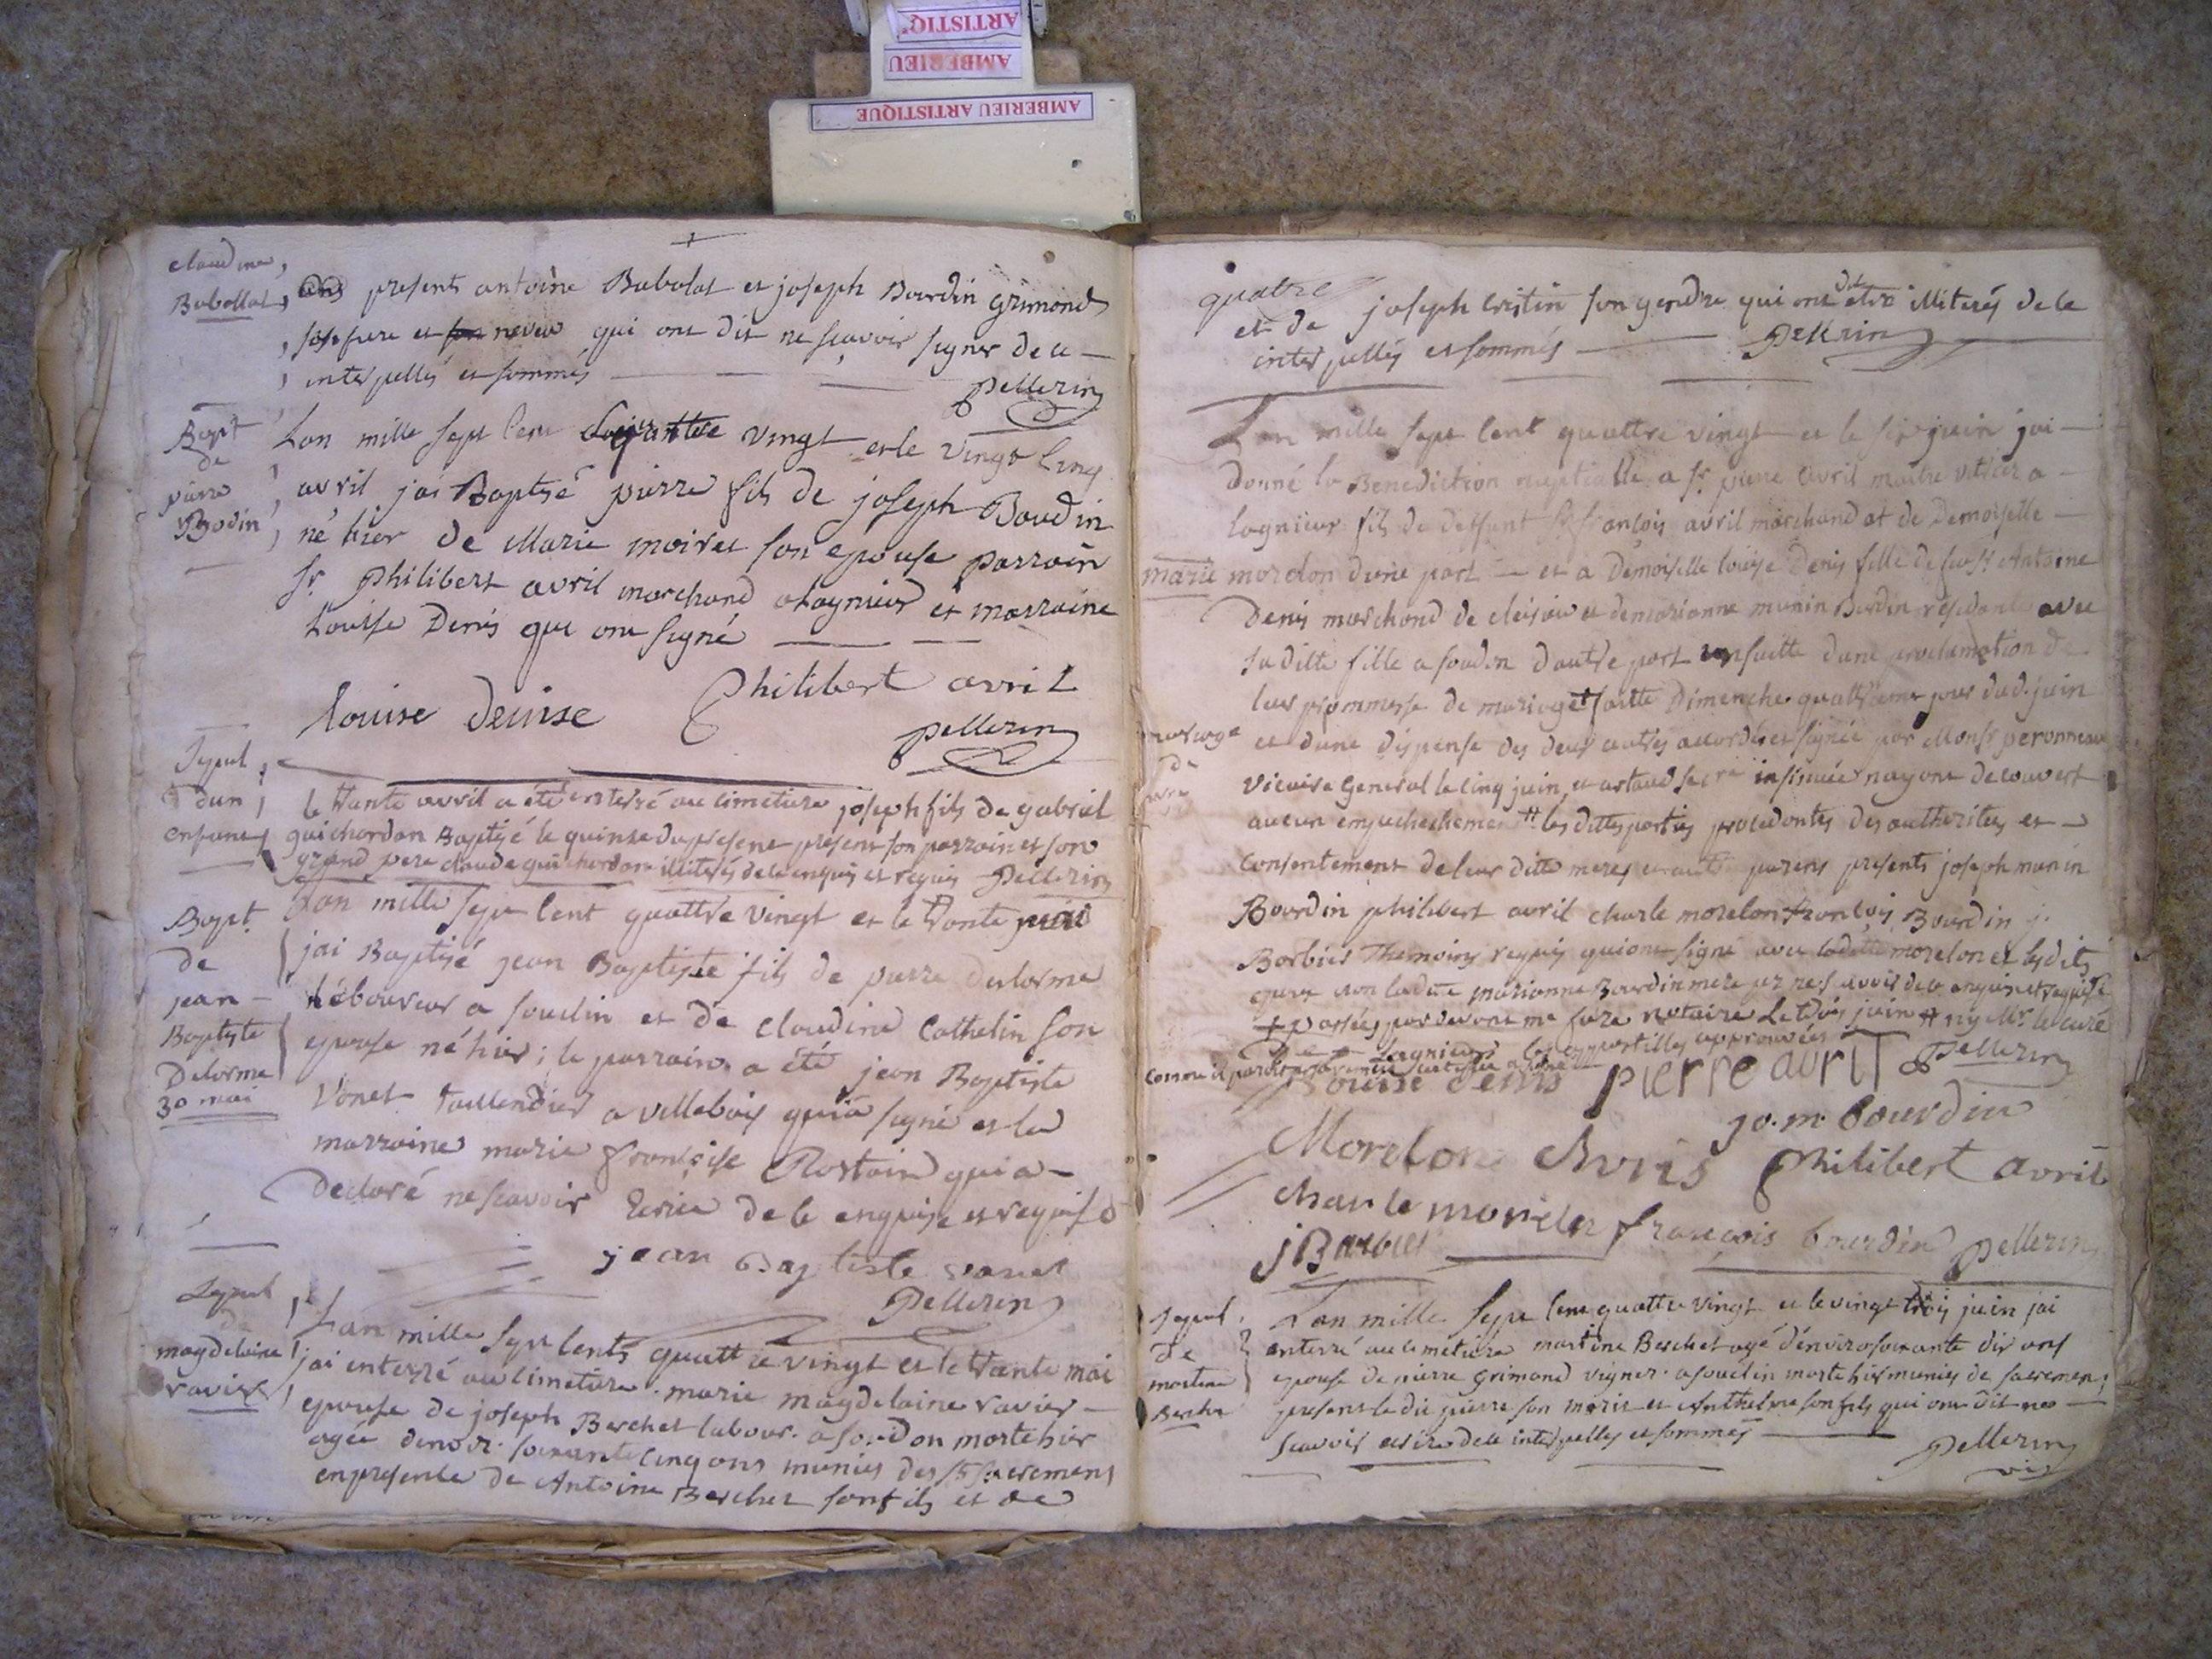 ARTISTIQ
AMBERIEU
AMBERIEU ARTISTIQUE
claudine
Babollat
presents antoine Babolat et joseph Bourdin grimond
frere et neveu qui ont dit ne scavoir signer de ce
interpellés et sommés
pellerin
Bapt
de
pierre
Bodin
Lan mille sept cent quattre vingt et le vingt cinq
avril jai Baptisé pierre fils de joseph Boudin
né hier de Marie moiret son epouse parrain
sr. Philibert avril marchand a lagnieu et marraine
Louise Denis qui ont signé
louise denise
Philibert avril
pellerin
Sepul
dun
enfant
le trante avril a été enterré au cimetiere joseph fils de gabriel
guichardon Baptisé le quinse du present present son parrain et son
grand pere claude guichardon illiterés de ce enquis et requis Pellerin
Bapt.
de
jean
Baptiste
Delorme
30 mai
Lan mille sept cent quattre vingt et le trante mai
jai Baptisé jean Baptiste fils de pierre delorme
laboureur a soudin et de claudine Cathelin son
epouse né hier; le parrain a été jean Baptiste
Vanet taillendier a villebois qui a signé et la
marraine marie françoise Rostain qui a
declaré ne scavoir Ecrire de ce enquise et requise
jean Baptiste vanet
Pellerin
Sepul
de
magdelaine
ravier
Lan mille sept cents quattre vingt et le trante mai
jai enterré au cimetiere marie magdelaine ravier
epouse de joseph Berchet labour. a soudon morte hier
agée denvir. soixante cinq ans munies des sts sacremens
en presence de Antoine Berchet son fils et de
quatre
et de joseph cristin son gendre qui ont dit etre illiterés de ce
interpellés et sommés
Pellerin
Lan mille sept cent quattre vingt et le six juin jai
donné la Benediction nuptialle a sr. pierre avril maitre vitrier a
Lagnieux fils de deffunt sr francois avril marchand et de Demoiselle
marie morelon dune part et a Demoiselle louise Denis fille de feu sr. Antoine
Denis marchand de cleisieu et demarianne munin Burdin residante avec
sa ditte fille a soudon dautre part ensuitte dune proclamation de
leur prommesse de mariage + faitte Dimenche quattrieme jour dud. juin
mariage
de
et dune dispense des deux autres accordés et signée par Monsr peronneau
Vicaire General le cinq juin, et artaud secre insinuée nayant decouvert
aucun empechechement # les dittes parties procedantes des authorités et
Consentement de leur ditte meres et autres parens presents joseph munin
Bourdin philibert avril charle morelon françois Bourdin j.
Barbier Themoins requis qui ont signé avec la ditte morelon et lesdits
epoux non ladite marianne Bourdin mere pr ne scavoir de ce enquise et requise
+ passées par devant me fare notaire Le trois juin # ny Mr. le curé
de Lagnieu les apostilles approuvées
louise denis
pierre avril
Pellerin
jo. m. bourdin
Morelon Avris
Philibert avril
charle morelon
françois bourdin
pellerin
j Barbier
Sepul.
de
martine
Berchet
Lan mille sept cent quattre vingt et le vingt trois juin jai
enterré au cimetiere martine Berchet agé denviro soixante dix ans
epouse de pierre grimond vigner. a soudin morte hier munies de sacremens
present le dit pierre son mari et Anthelme son fils qui ont dit ne
scavoir ecrire de ce interpelles et sommés
Pellerin
vic